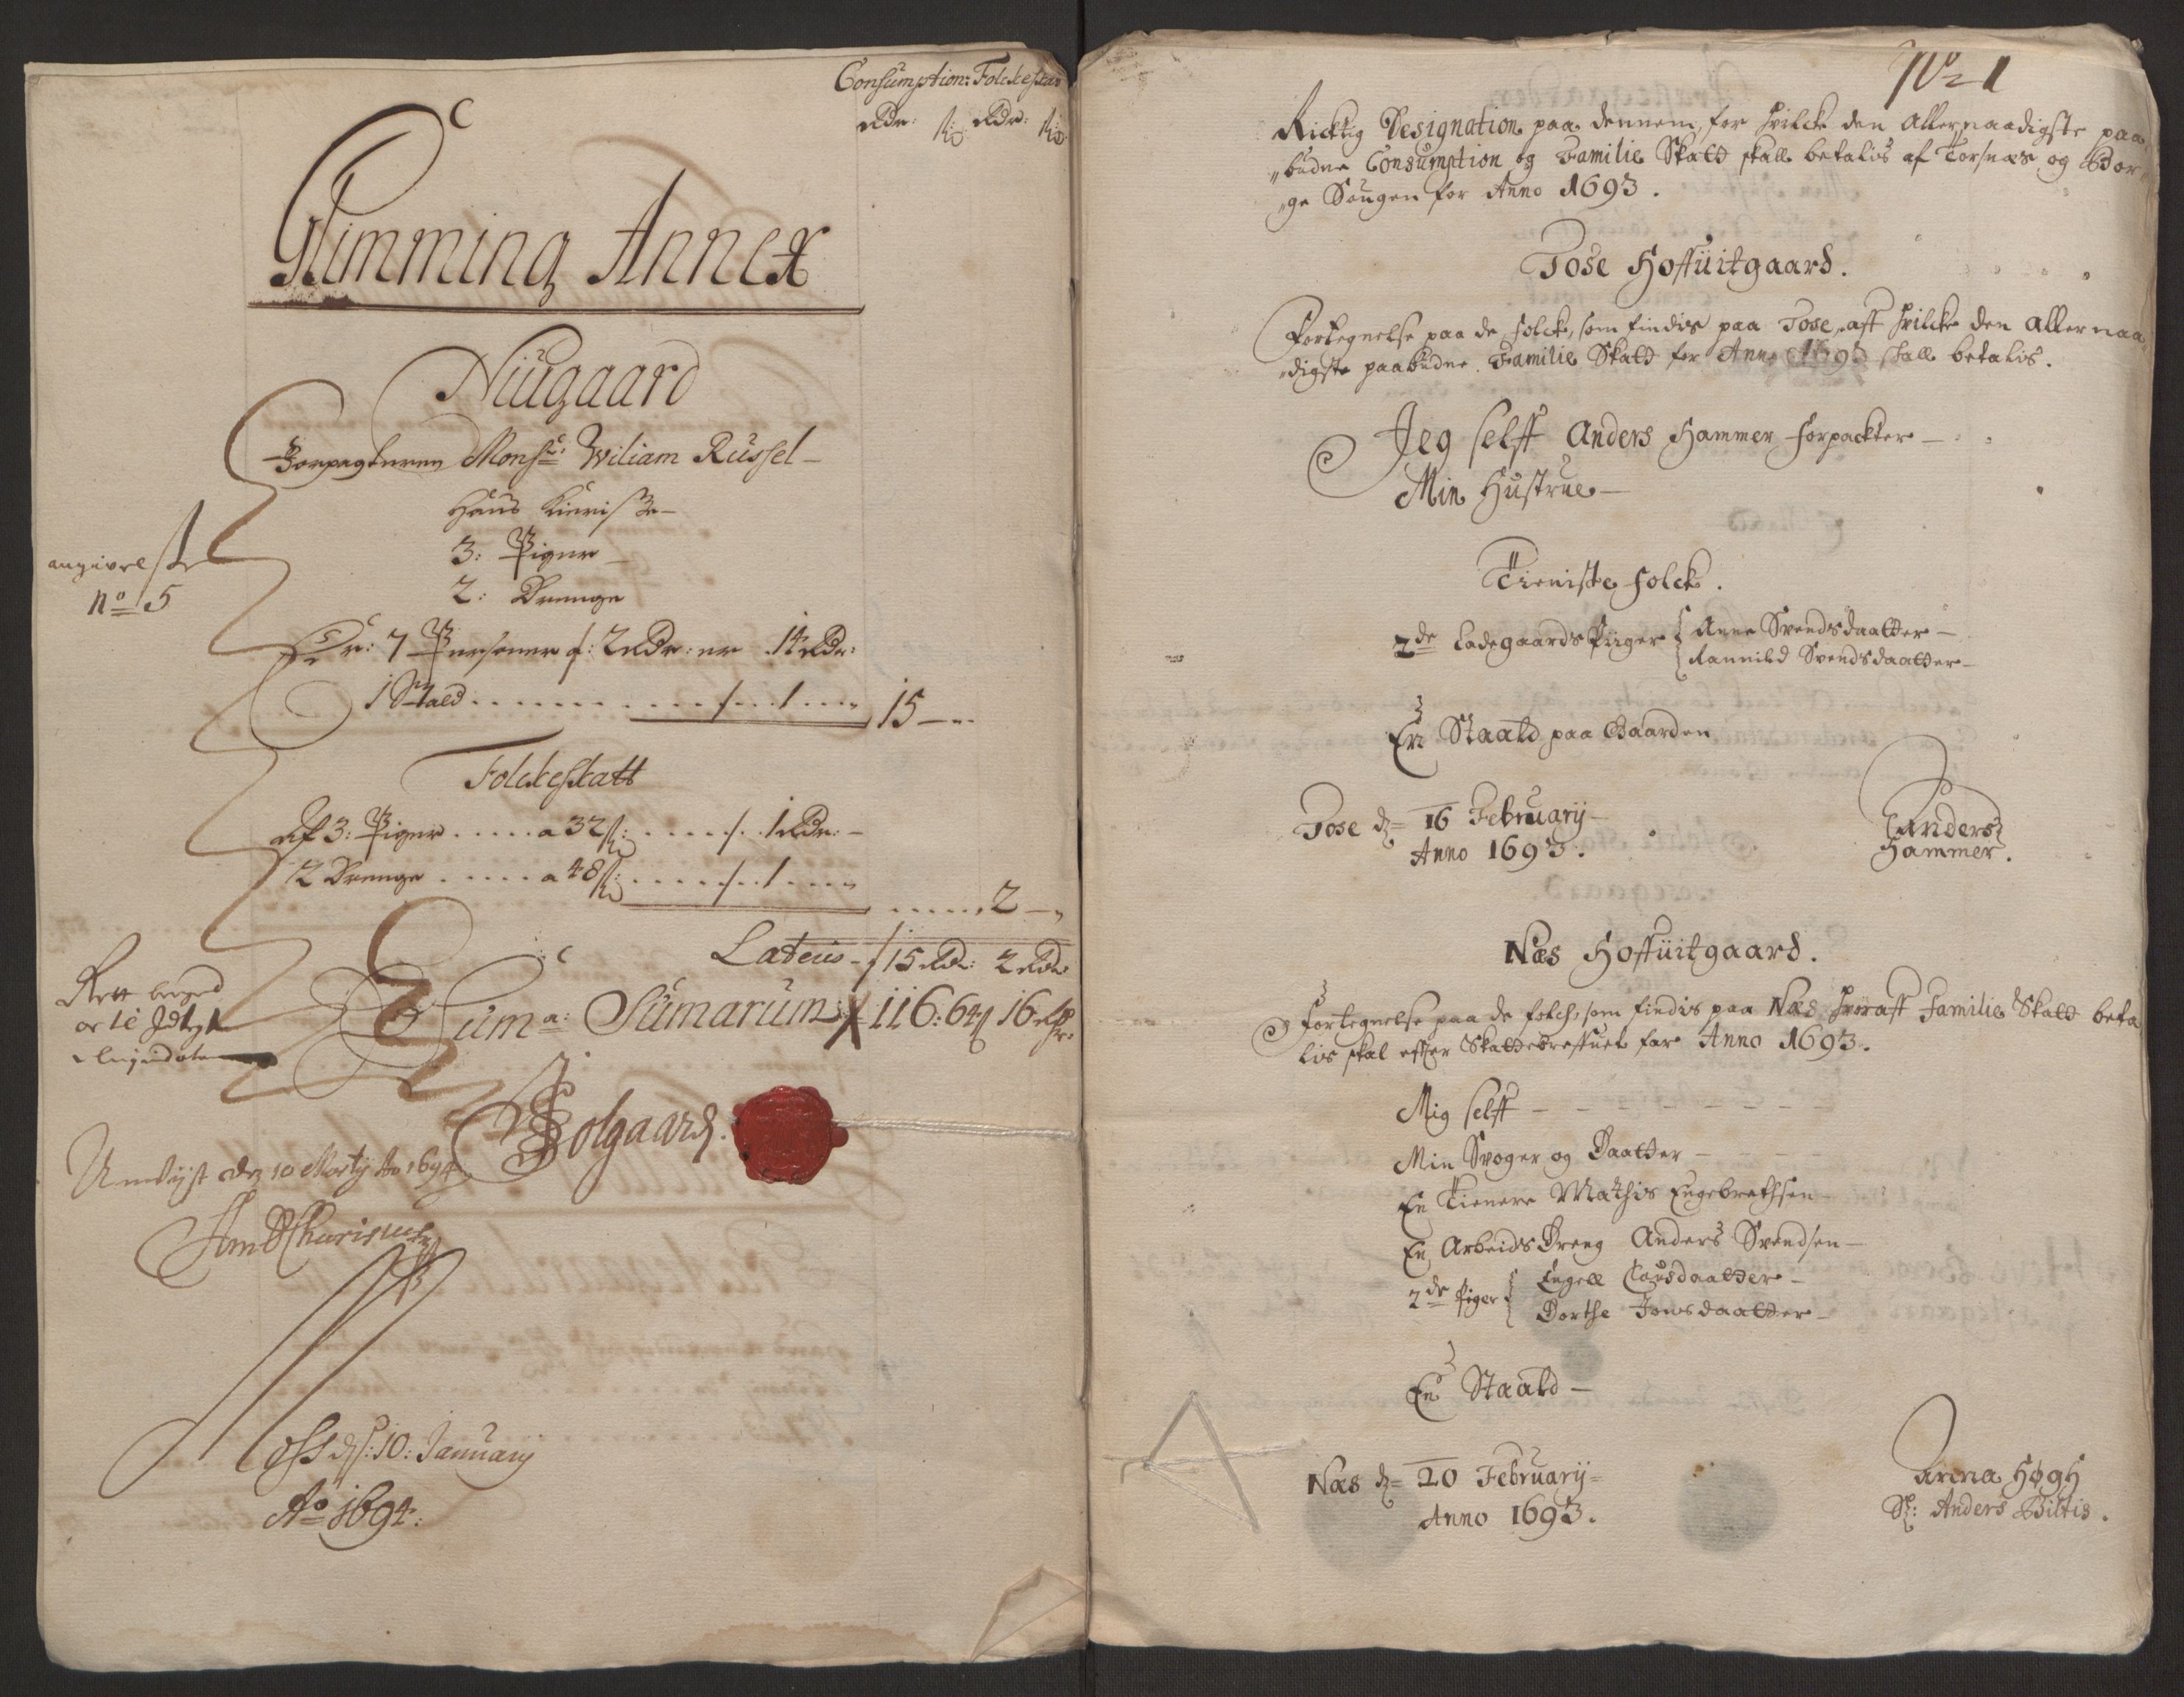 Consumption: Folckeskat
Rdr: ß: Rdr: ß:
Glimming Annex
Niugaard
Forpagteren Monsr: Wiliam Russel -
Hans Kieriste -
3: Piger -
2: Drenge
angivelse
No 5
Er: 7 Personer a: 2 Rdr: er 14 Rdr:
1 Stald . . . . . . . . . . 1 . . . 15 - -
Folckeskatt
Af 3: Piger . . . . . a 32 ß: . . . . . 1 Rdr: -
2 Drenge . . . . . a 48 ß: . . . . . 1 . . . . . . . . 2 -
Lateris - 15 Rdr: 2 Rdr
Suma: Sumarum 116: 64 ß 16
Rett
Bolgaard.
den 10 Martij Ao 1694
d: 10: January
Ao 1694:
No 1
Ricktig Designation paa dennem, for hvilcke den Allernaadigste paa
"budne Consumption og Familie Skatt skall betalis af Torsnæs og Bor-
"ge Sougen for Anno 1693.
Tose Hoffuitgaard.
Fortegnelse paa de folck, som findis paa Tose, aff hvilcke den Allernaa
"digste paabudne Familie Skatt for Anno 1693 skall betalis.
Jeg selff Anders Hammer forpackter -
Min Hustrue -
Tieniste folck.
2de Ladegaards Piiger { Anne Svendsdaatter -
Rannild Svendsdaatter -
En Staald paa Gaarden
Tose d= 16 February -
Anno 1693.
Anders
Hammer.
Næs Hoffuitgaard.
Fortegnelse paa de folck som findis paa Næs, hvoraff Familie Skatt beta
lis skal effter Skattebreffuet for Anno 1693.
Mig selff - - - - - - - -
Min Svoger og Daatter - - - -
En Tienere Mathis Engebrethsen
En Arbeids Dreng Anders Svendsen -
2de Piger { Engell Clausdaatter -
Dorthe Jonsdaatter -
En Staald -
Næs d= 20 February=
Anno 1693.
Anna Høgh
Sl: Anders Biltis.